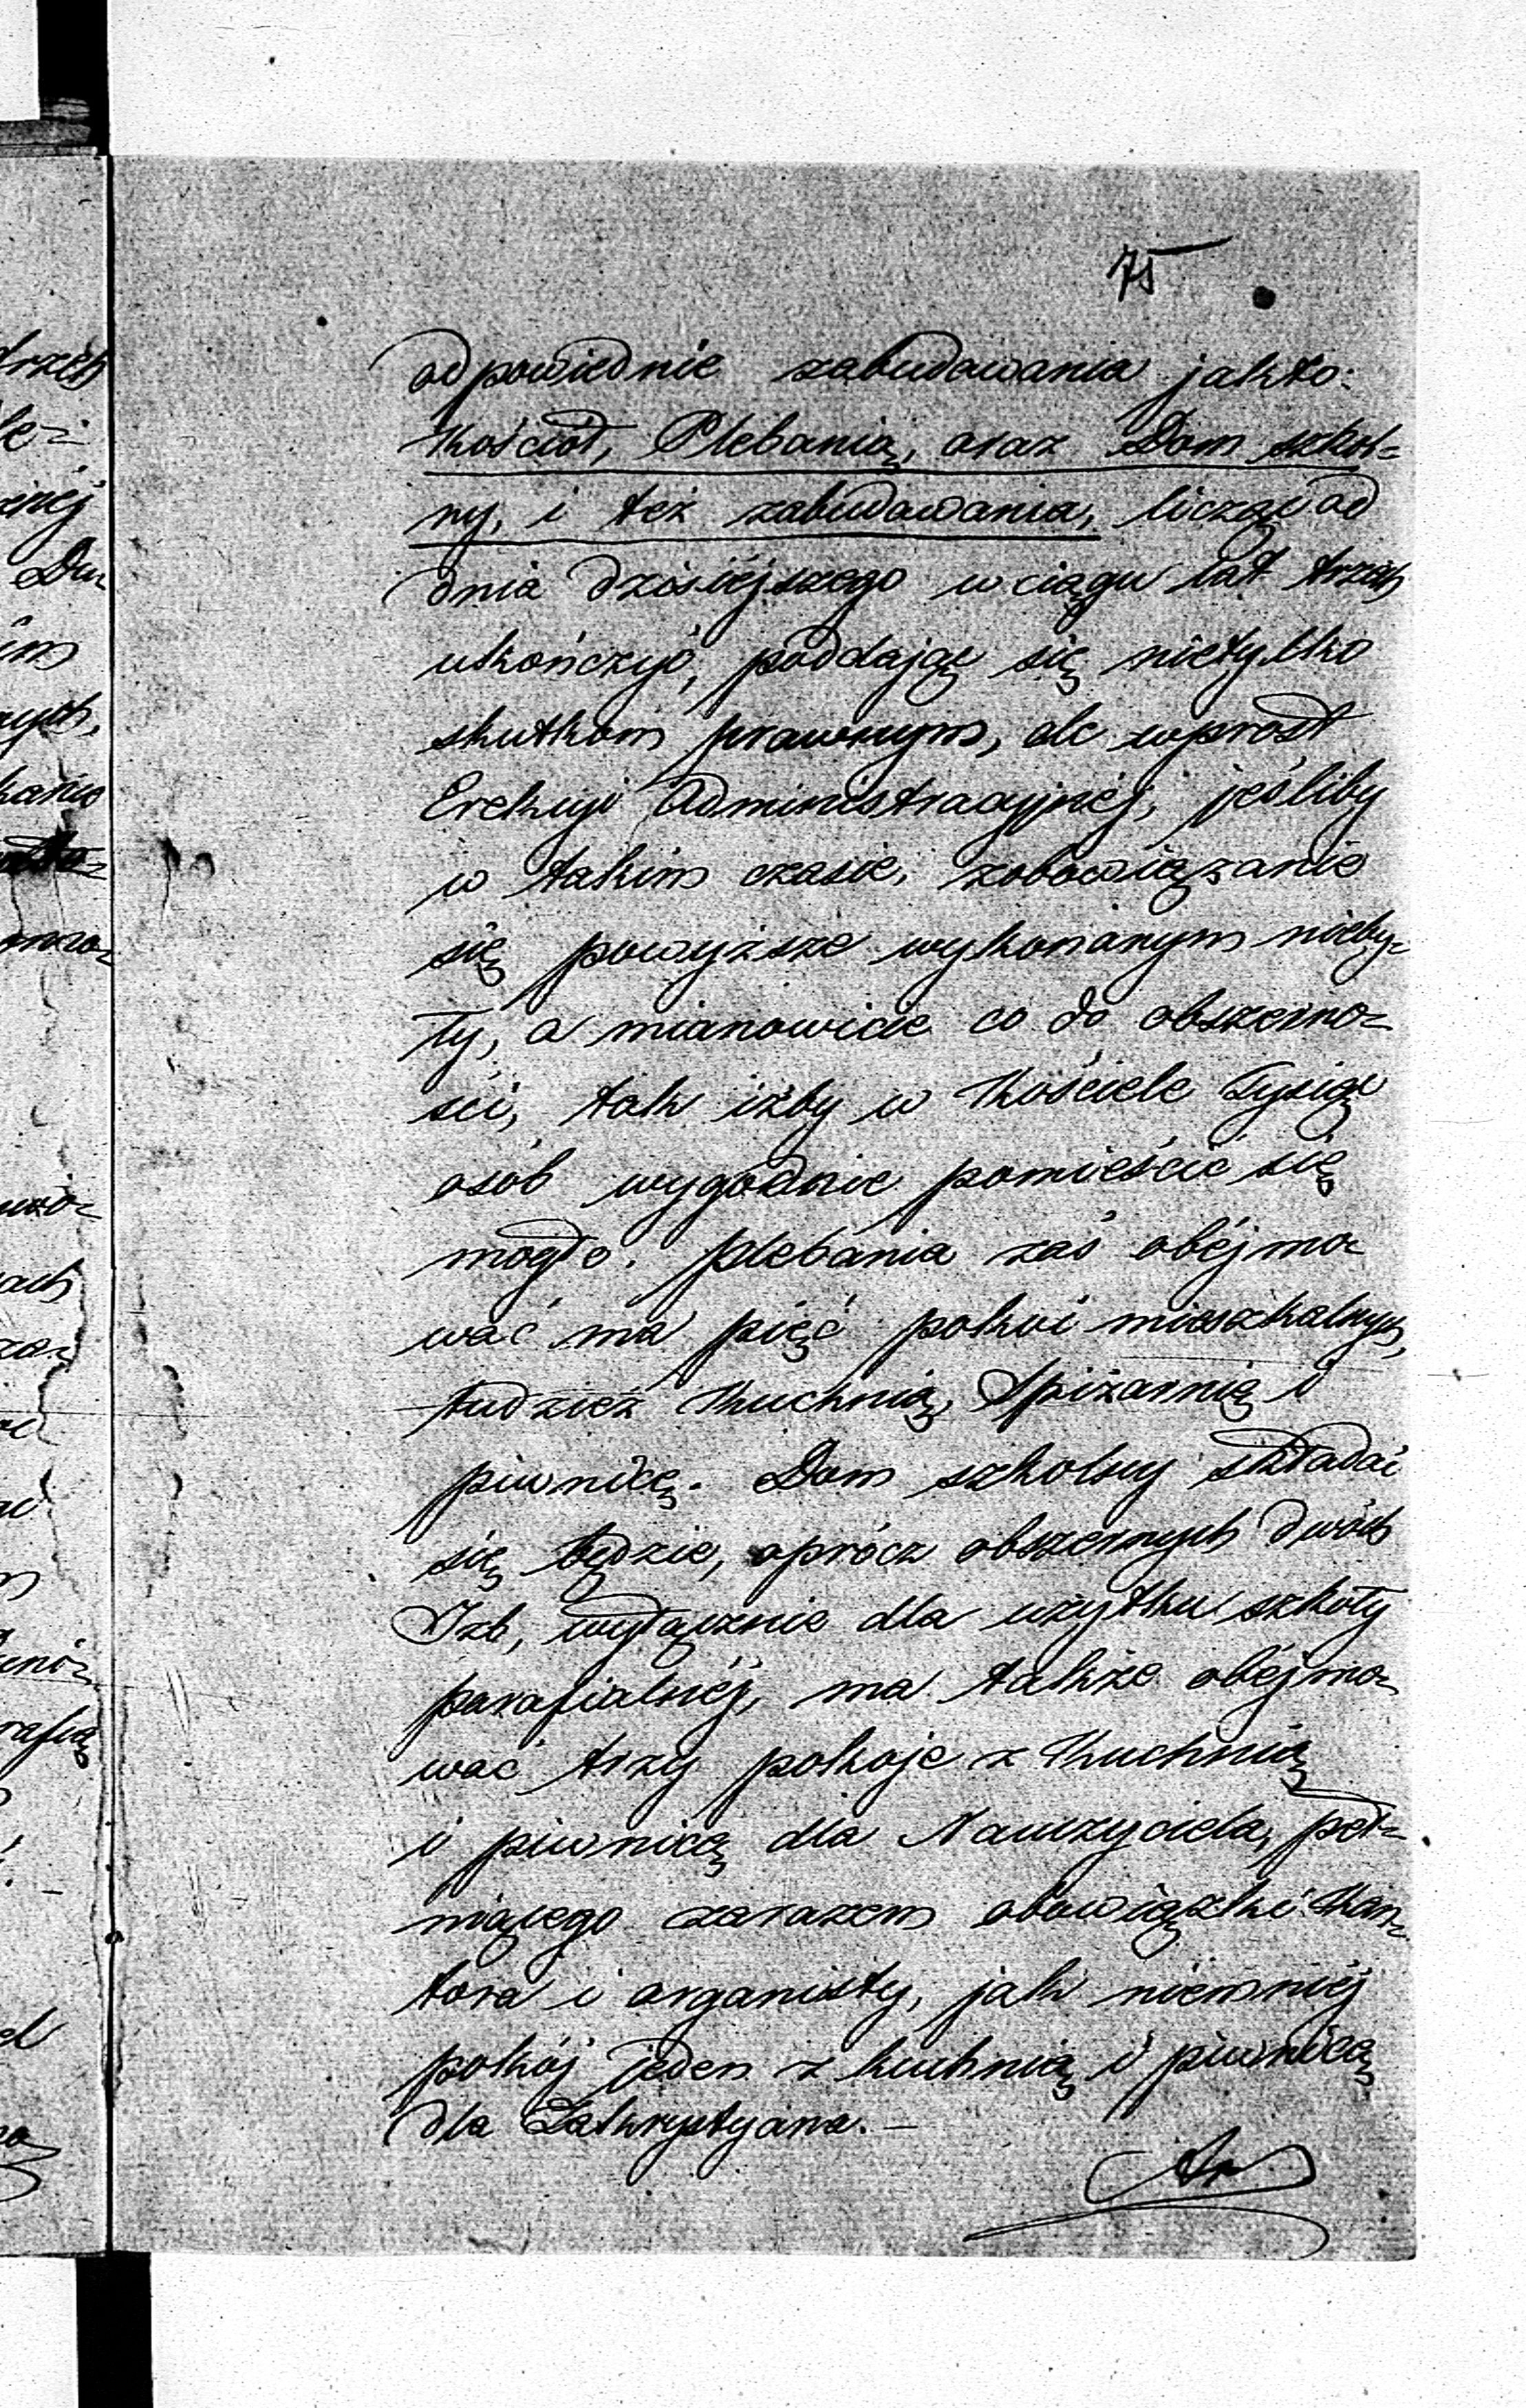 75
odpowiednie zabudowania jakto:
Kościoł, Plebanią, oraz Dom szkol=
ny, i też zabudowania, licząc od
dnia dzisiéjszego w ciągu lat trzech
ukończyć, poddając się nietylko
skutkom prawnym, ale wprost
Exekucyi Administracyjnéj, jeśliby
w takim czasie, zobowiązanie
się powyższe wykonanym nieby=
ły, a mianowicie co do obszerno=
ści, tak iżby w Kościele Tysiąc
osób wygodnie pomieścić się
mogło. plebania zaś obéjmo
wać ma pięć pokoi mieszkalnych,
tudzież Kuchnią, Spiżarnią i
piwnicę. Dom szkolny składać
się będzie, oprócz obszernych dwóch
Izb, wyłącznie dla użytku szkoły
parafialnéj, ma także obéjmo=
wać trzy pokoje z Kuchnią
i piwnicą dla Nauczyciela, peł=
niącego zarazem obowiązki Kan=
tora i organisty, jak niemniéj
pokój jeden z kuchnią i piwnicą
dla Zakrystyana. —